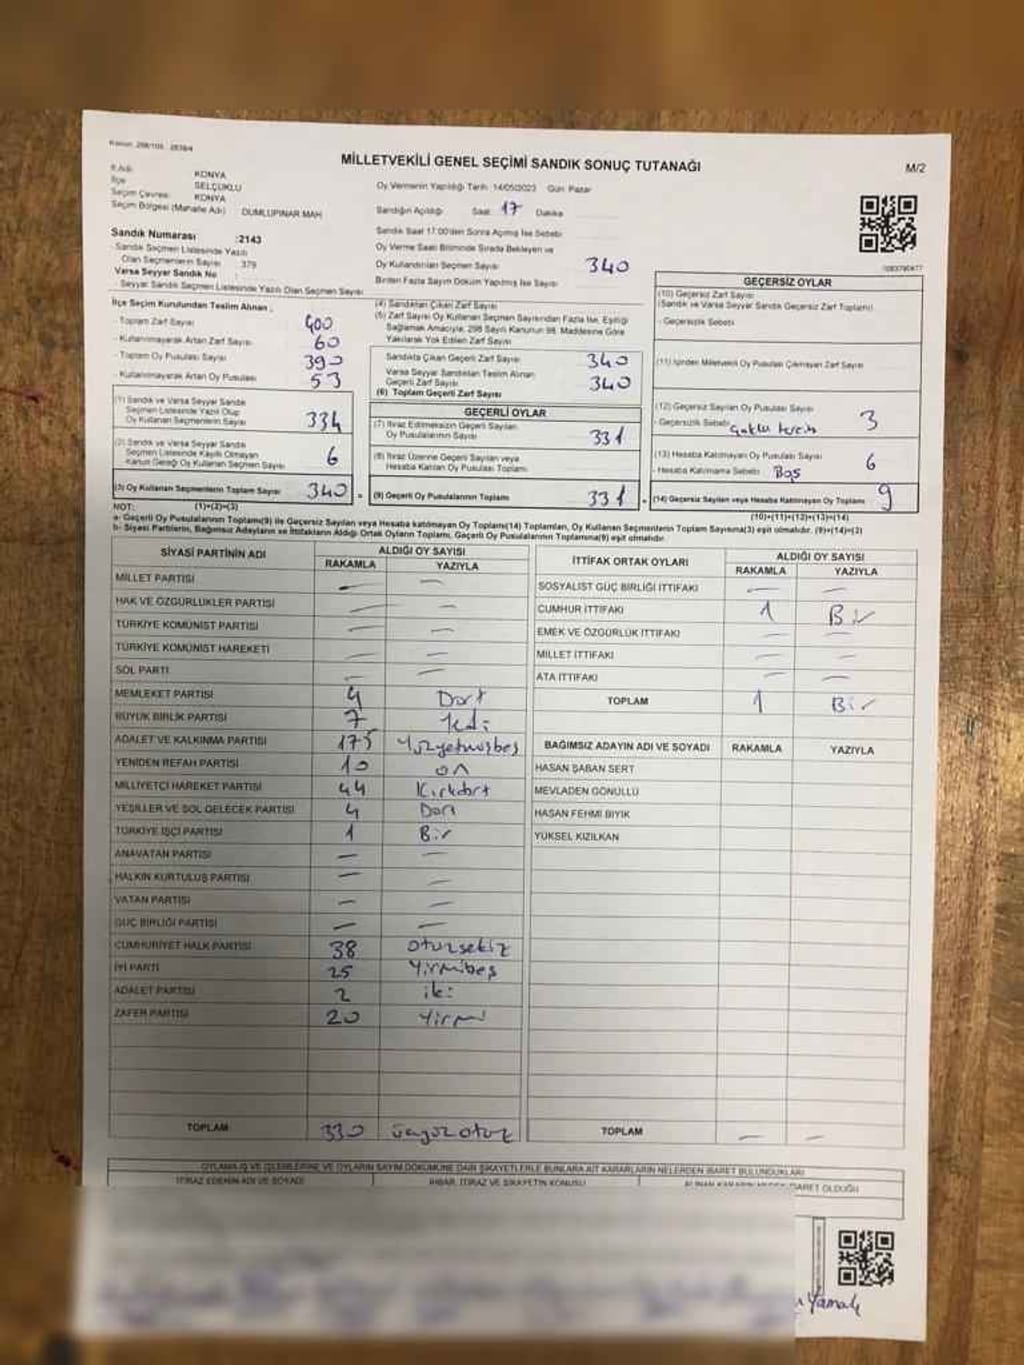 MİLLETVEKİLİ GENEL SEÇİMİ SANDIK SONUÇ TUTANAĞI
M/2
İl Adı : KONYA
İlçe : SELÇUKLU
Seçim Çevresi : KONYA
Seçim Bölgesi (Mahalle Adı) DUMLUPINAR MAH
Sandık Numarası :2143
Sandık Seçmen Listesinde Yazılı
Olan Seçmenlerin Sayısı : 379
Varsa Seyyar Sandık No :
Seyyar Sandık Seçmen Listesinde Yazılı Olan Seçmen Sayısı
Oy Vermenin Yapıldığı Tarih 14/05/2023 Gün Pazar
Sandığın Açıldığı Saat 17 Dakika
Sandık Saat 17.00'den Sonra Açılmış İse Sebebi
Oy Verme Saati Bitiminde Sırada Bekleyen ve
Oy Kullandırılan Seçmen Sayısı 340
Birden Fazla Sayım Döküm Yapılmış İse Sayısı
İlçe Seçim Kurulundan Teslim Alınan ;
- Toplam Zarf Sayısı 400
- Kullanılmayarak Artan Zarf Sayısı 60
- Toplam Oy Pusulası Sayısı 390
- Kullanılmayarak Artan Oy Pusulası 53
(1) Sandık ve Varsa Seyyar Sandık
Seçmen Listesinde Yazılı Olup
Oy Kullanan Seçmenlerin Sayısı 334
(2) Sandık ve Varsa Seyyar Sandık
Seçmen Listesinde Kayıtlı Olmayan
Kanun Gereği Oy Kullanan Seçmen Sayısı 6
(3) Oy Kullanan Seçmenlerin Toplam Sayısı 340
(1)+(2)=(3)
(4) Sandıktan Çıkan Zarf Sayısı
(5) Zarf Sayısı Oy Kullanan Seçmen Sayısından Fazla İse, Eşitliği
Sağlamak Amacıyla, 298 Sayılı Kanunun 98. Maddesine Göre
Yakılarak Yok Edilen Zarf Sayısı
Sandıkta Çıkan Geçerli Zarf Sayısı 340
Varsa Seyyar Sandıktan Teslim Alınan
Geçerli Zarf Sayısı 340
(6) Toplam Geçerli Zarf Sayısı
GEÇERLİ OYLAR
(7) İtiraz Edilmeksizin Geçerli Sayılan
Oy Pusulalarının Sayısı 331
(8) İtiraz Üzerine Geçerli Sayılan veya
Hesaba Katılan Oy Pusulası Toplamı
(9) Geçerli Oy Pusulalarının Toplamı 331
GEÇERSİZ OYLAR
(10) Geçersiz Zarf Sayısı
(Sandık ve Varsa Seyyar Sandık Geçersiz Zarf Toplamı)
- Geçersizlik Sebebi
(11) İçinden Milletvekili Oy Pusulası Çıkmayan Zarf Sayısı
(12) Geçersiz Sayılan Oy Pusulası Sayısı 3
- Geçersizlik Sebebi Çoklu tercih
(13) Hesaba Katılmayan Oy Pusulası Sayısı 6
- Hesaba Katılmama Sebebi Boş
(14) Geçersiz Sayılan veya Hesaba Katılmayan Oy Toplamı 9
(10)+(11)+(12)+(13)=(14)
NOT:
a- Geçerli Oy Pusulalarının Toplamı(9) ile Geçersiz Sayılan veya Hesaba katılmayan Oy Toplamı(14) Toplamları, Oy Kullanan Seçmenlerin Toplam Sayısına(3) eşit olmalıdır. (9)+(14)=(3)
b- Siyasi Partilerin, Bağımsız Adayların ve İttifakların Aldığı Ortak Oyların Toplamı, Geçerli Oy Pusulalarının Toplamına(9) eşit olmalıdır.
SİYASİ PARTİNİN ADI ALDIĞI OY SAYISI
RAKAMLA YAZIYLA
MİLLET PARTİSİ — —
HAK VE ÖZGÜRLÜKLER PARTİSİ — —
TÜRKİYE KOMÜNİST PARTİSİ — —
TÜRKİYE KOMÜNİST HAREKETİ — —
SOL PARTİ — —
MEMLEKET PARTİSİ 4 Dört
BÜYÜK BİRLİK PARTİSİ 7 Yedi
ADALET VE KALKINMA PARTİSİ 175 Yüzyetmişbeş
YENİDEN REFAH PARTİSİ 10 on
MİLLİYETÇİ HAREKET PARTİSİ 44 Kırkdört
YEŞİLLER VE SOL GELECEK PARTİSİ 4 Dört
TÜRKİYE İŞÇİ PARTİSİ 1 Bir
ANAVATAN PARTİSİ — —
HALKIN KURTULUŞ PARTİSİ — —
VATAN PARTİSİ — —
GÜÇ BİRLİĞİ PARTİSİ — —
CUMHURİYET HALK PARTİSİ 38 otuzsekiz
İYİ PARTİ 25 Yirmibeş
ADALET PARTİSİ 2 iki
ZAFER PARTİSİ 20 Yirmi
TOPLAM 330 üçyüz otuz
İTTİFAK ORTAK OYLARI ALDIĞI OY SAYISI
RAKAMLA YAZIYLA
SOSYALİST GÜÇ BİRLİĞİ İTTİFAKI — —
CUMHUR İTTİFAKI 1 Bir
EMEK VE ÖZGÜRLÜK İTTİFAKI — —
MİLLET İTTİFAKI — —
ATA İTTİFAKI — —
TOPLAM 1 Bir
BAĞIMSIZ ADAYIN ADI VE SOYADI RAKAMLA YAZIYLA
HASAN ŞABAN SERT
MEVLADEN GÖNÜLLÜ
HASAN FEHMİ BIYIK
YÜKSEL KIZILKAN
TOPLAM — —
OYLAMA İŞ VE İŞLEMLERİNE VE OYLARIN SAYIM DÖKÜMÜNE DAİR ŞİKAYETLERLE BUNLARA AİT KARARLARIN NELERDEN İBARET BULUNDUKLARI
İTİRAZ EDENİN ADI VE SOYADI İHBAR, İTİRAZ VE ŞİKAYETİN KONUSU